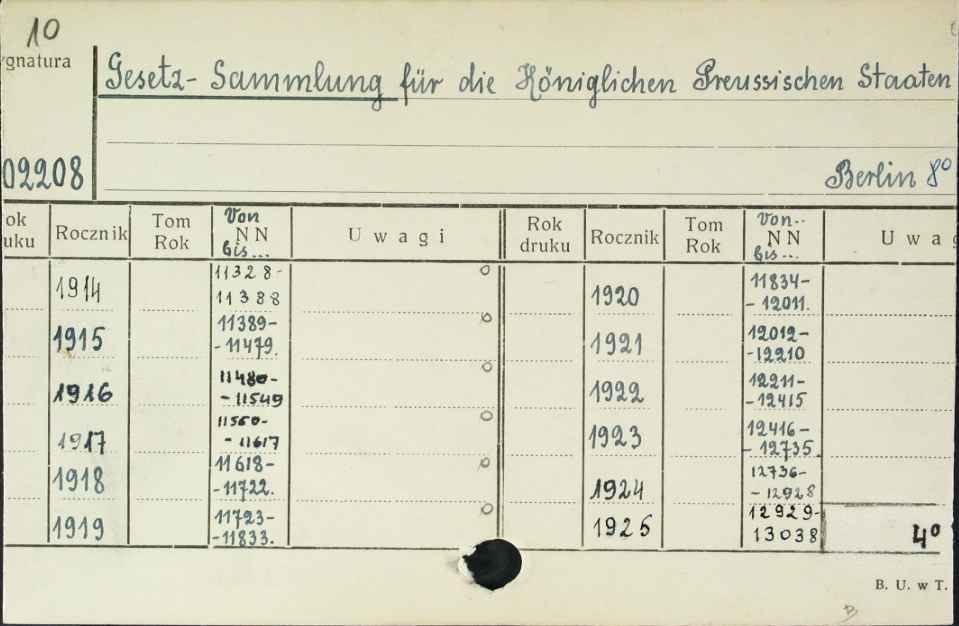 10
ygnatura
Gesetz- Sammlung für die Königlichen Preussischen Staaten
02208
Berlin 8°
ok uku Rocznik Tom Rok Von N N bis... U w a g i Rok druku Rocznik Tom Rok Von.. N N bis... U w a g
1914 11328- 11388 1920 11834- - 12011.
1915 11389- -11479. 1921 12012- -12210
1916 11480- - 11549 1922 12211- -12415
1917 11550- - 11617 1923 12416- - 12735.
1918 11618- -11722. 1924 12736- - 12928
1919 11723- -11833. 1925 12929- 13038 4°
B. U. w T.
B